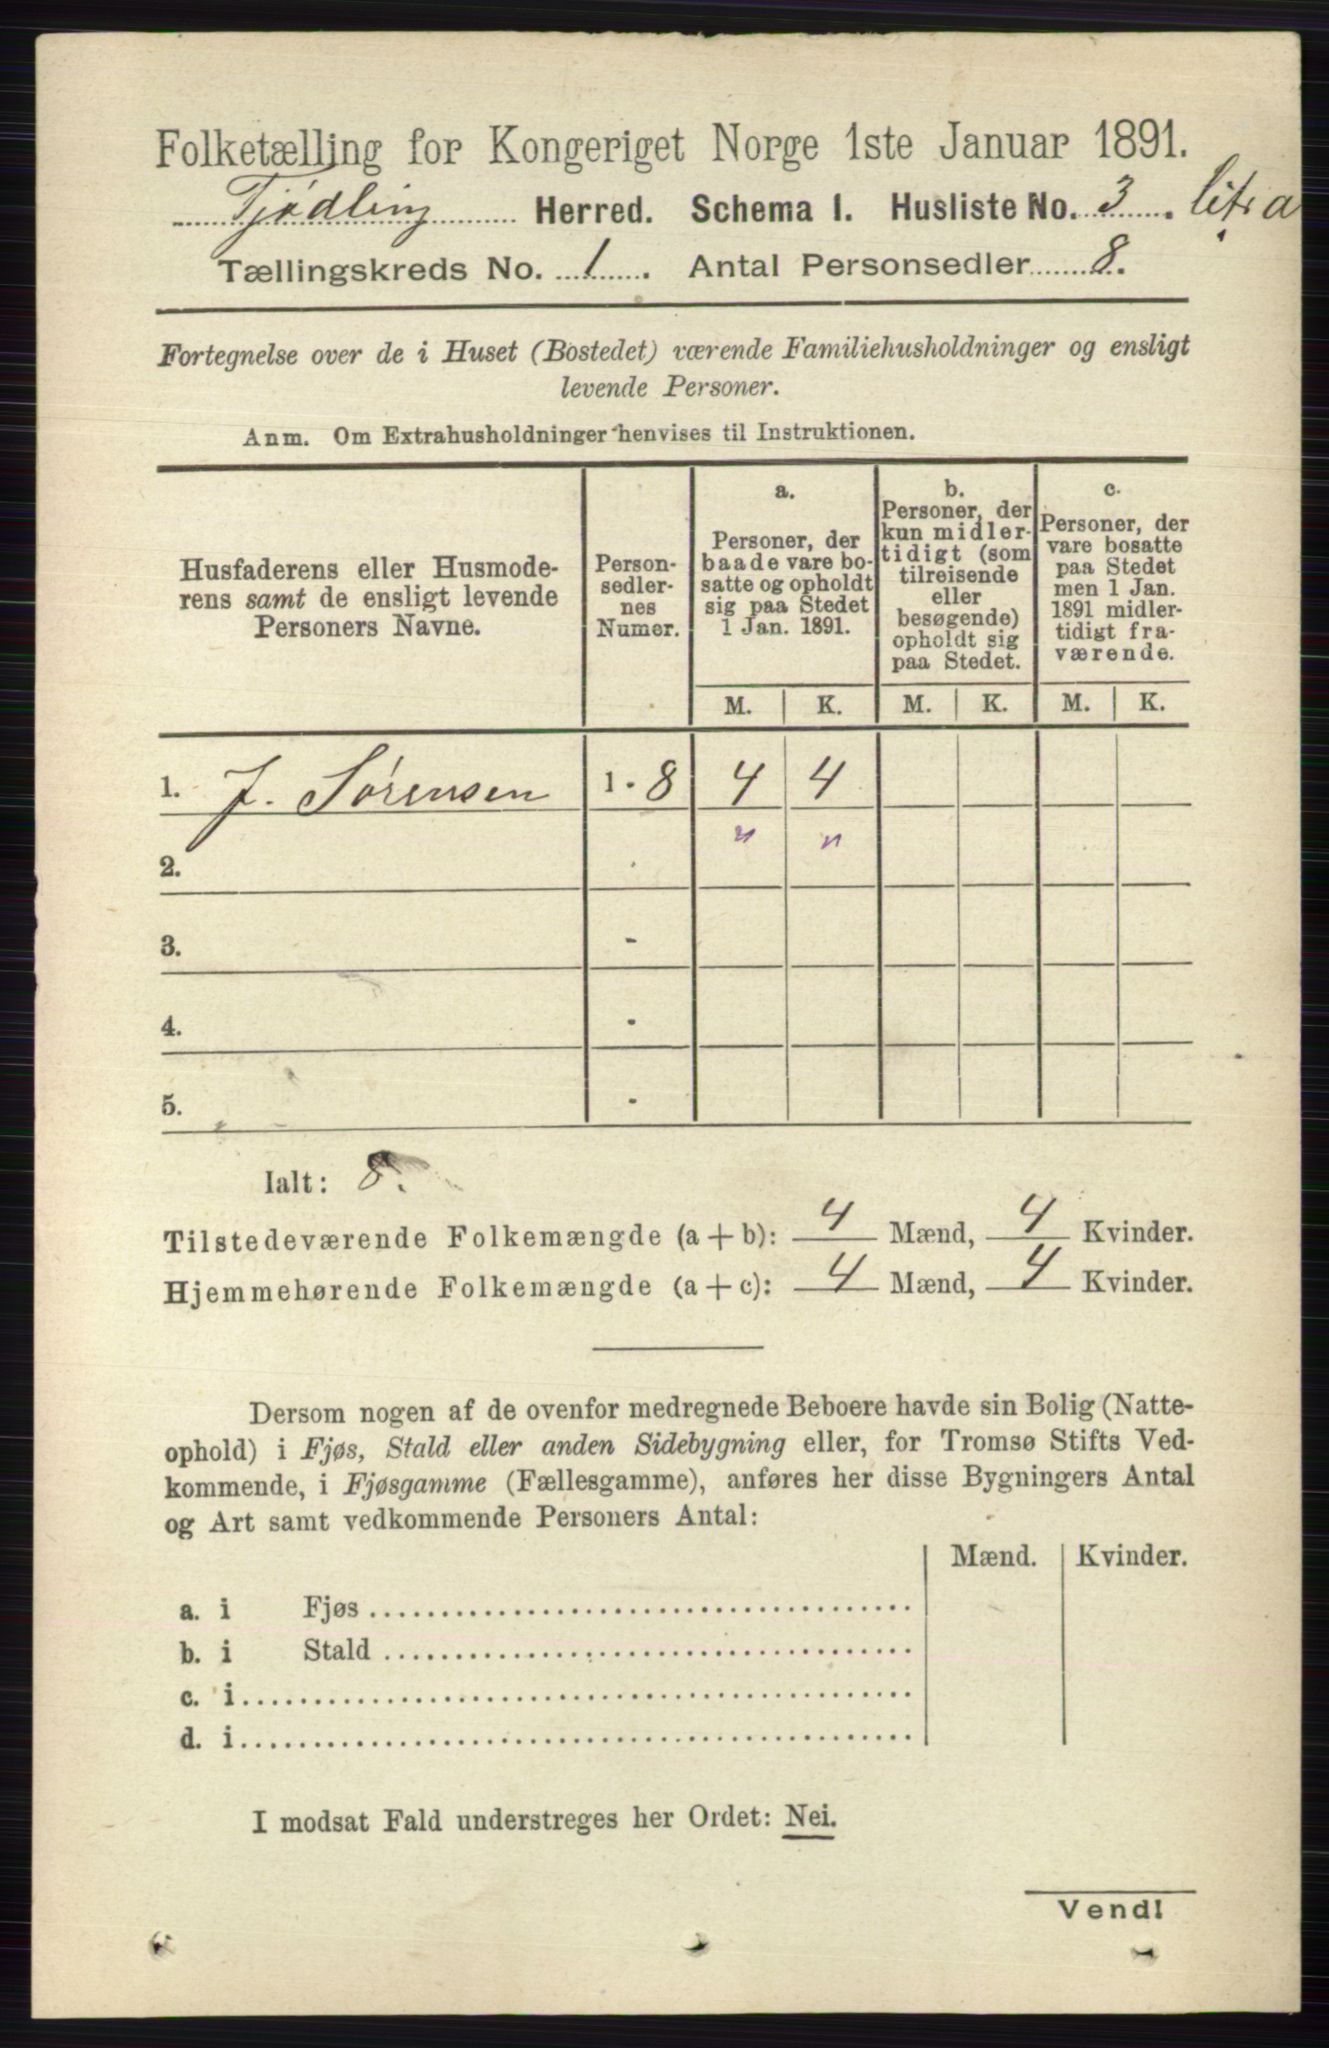 Folketælling for Kongeriget Norge 1ste Januar 1891.
Tjødling Herred. Schema I. Husliste No. 3. litr a
Tællingskreds No. 1. Antal Personsedler 8.
Fortegnelse over de i Huset (Bostedet) værende Familiehusholdninger og ensligt
levende Personer.
Anm. Om Extrahusholdninger henvises til Instruktionen.
Husfaderens eller Husmode-
rens samt de ensligt levende
Personers Navne.
Person-
sedler-
nes
Numer.
a.
Personer, der
baade vare bo-
satte og opholdt
sig paa Stedet
1 Jan. 1891.
b.
Personer, der
kun midler-
tidigt (som
tilreisende
eller
besøgende)
opholdt sig
paa Stedet.
c.
Personer, der
vare bosatte
paa Stedet
men 1 Jan.
1891 midler-
tidigt fra-
værende.
M. K. M. K. M. K.
1. J. Sørensen 1 - 8 4 4
" "
2. -
3. -
4. -
5. -
Ialt: 8.
Tilstedeværende Folkemængde (a + b): 4 Mænd, 4 Kvinder.
Hjemmehørende Folkemængde (a + c): 4 Mænd, 4 Kvinder.
Dersom nogen af de ovenfor medregnede Beboere havde sin Bolig (Natte-
ophold) i Fjøs, Stald eller anden Sidebygning eller, for Tromsø Stifts Ved-
kommende, i Fjøsgamme (Fællesgamme), anføres her disse Bygningers Antal
og Art samt vedkommende Personers Antal:
Mænd. Kvinder.
a. i Fjøs
b. i Stald
c. i
d. i
I modsat Fald understreges her Ordet: Nei.
Vend!